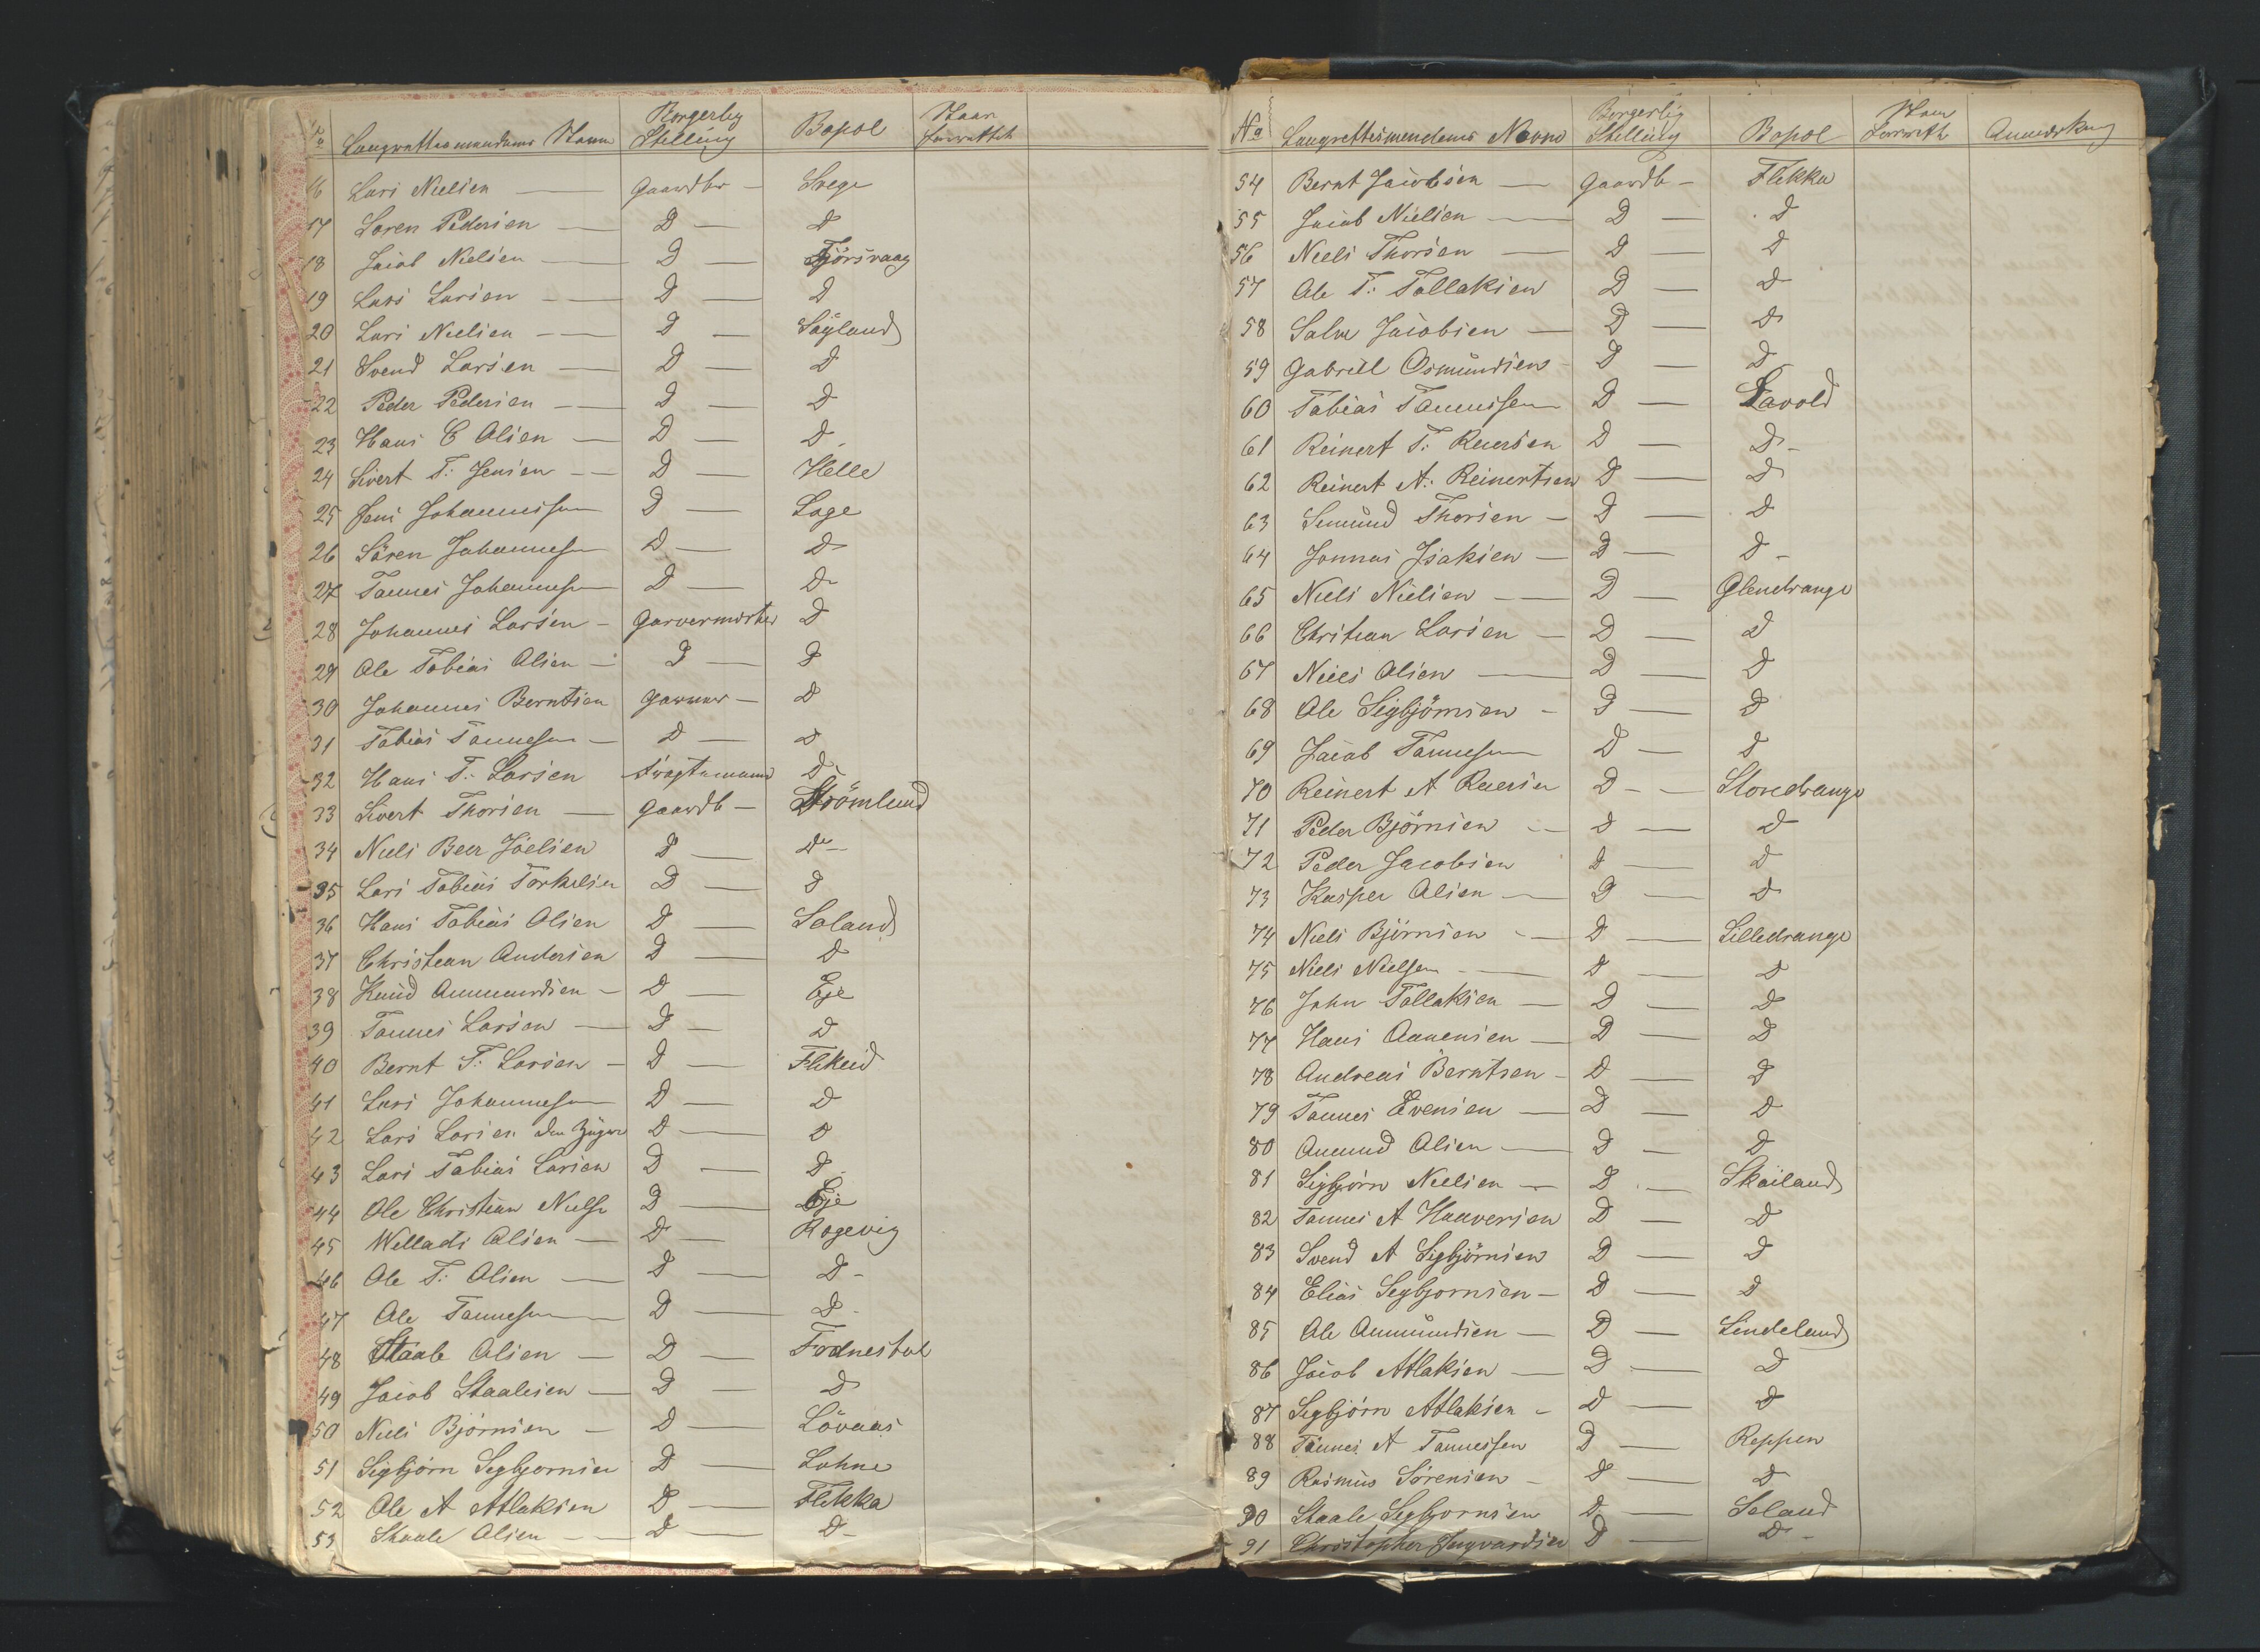 No Laugrettesmendens Navne Borgerlig Stilling Bopæl Naar forrettet
16 Lars Nielsen — Gaardbr — Svege
17 Soren Pedersen — D — D
18 Jacob Nielsen — D — Fjörsvaag
19 Lars Larsen — D — D
20 Lars Nielsen — D — Søyland
21 Svend Larsen — D — D
22 Peder Pedersen — D — D
23 Hans C Olsen — D — D
24 Sivert T: Jensen — D — Helle
25 Jens Johannessen D — Loge
26 Sören Johannesen D — D
27 Tønnes Johannesen D — D
28 Johannes Larsen — Garvermester D
29 Ole Tobias Olsen — D — D
30 Johannes Berntsen Garver — D
31 Tobias Tønnesen — D — D
32 Hans T: Larsen Fragtemand D
33 Sivert Thorsen — Gaardb — Strömland
34 Niels Beer Joelsen D — D
35 Lars Tobias Torkelsen D — D
36 Hans Tobias Olsen D — Soland
37 Christian Andersen D — D
38 Knud Aanmundsen — D — Eje
39 Tønnes Larsen — D — D
40 Bernt T: Larsen — D — Flikeid
41 Lars Johannesen D — D
42 Lars Larsen den Yngre D — D
43 Lars Tobias Larsen D — D
44 Ole Christian Nielse D — Eje
45 Wellads Olsen — D — Rogevig
46 Ole T: Olsen — D — D
47 Ole Tønnesen D — D
48 Staale Olsen — D — Fodnestøl
49 Jacob Staalesen — D — D
50 Niels Bjørnsen — D — Lövaas
51 Sigbjørn Segbjornsen D — Lohne
52 Ole A Atlaksen D — Flikka
53 Staale Olsen — D — D
No Laugrettesmendens Navne Borgerlig Stilling Bopæl Naar forrett Anmærkning
54 Bernt Jacobsen — Gaardb — Flikka
55 Jacob Nielsen — D — D
56 Niels Thorsen — D — D
57 Ole T: Tollaksen D — D
58 Salve Jacobsen — D — D
59 Gabriel Osmundsen — D — D
60 Tobias Tønnessen D — Lavold
61 Reinert T: Reiersen D — D
62 Reinert A: Reinertsen D — D
63 Semund Thorsen — D — D
64 Jonnas Isaksen — D — D
65 Niels Nielsen — D — Glendrange
66 Christian Larsen — D — D
67 Niels Olsen — D — D
68 Ole Sigbjörnsen — D — D
69 Jacob Tønnesen D — D
70 Reinert A Reiersen D — Storedrange
71 Peder Björnsen — D — D
72 Peder Jacobsen D — D
73 Kasper Olsen — D — D
74 Niels Björnsen — D — Lilledrange
75 Niels Nielsen — D — D
76 John Tollaksen — D — D
77 Hans Aanensen — D — D
78 Andreas Berntsen — D — D
79 Tønnes Evensen — D — D
80 Anmund Olsen — D — D
81 Sigbjörn Nielsen — D — Skailand
82 Tønnes A Haaversen D — D
83 Svend A Sigbjörnsen D — D
84 Elias Segbjornsen — D — D
85 Ole Anmundsen — D — Lindeland
86 Jacob Atlaksen — D — D
87 Segbjörn Atlaksen — D — D
88 Tønnes A Tønnessen D — Reppen
89 Rasmus Sörensen — D — D
90 Staale Segbjornsen D — Soland
91 Christopher Ingvardsen D — D